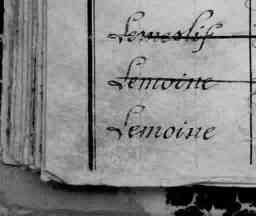 Lemeslif
Lemoine
Lemoine